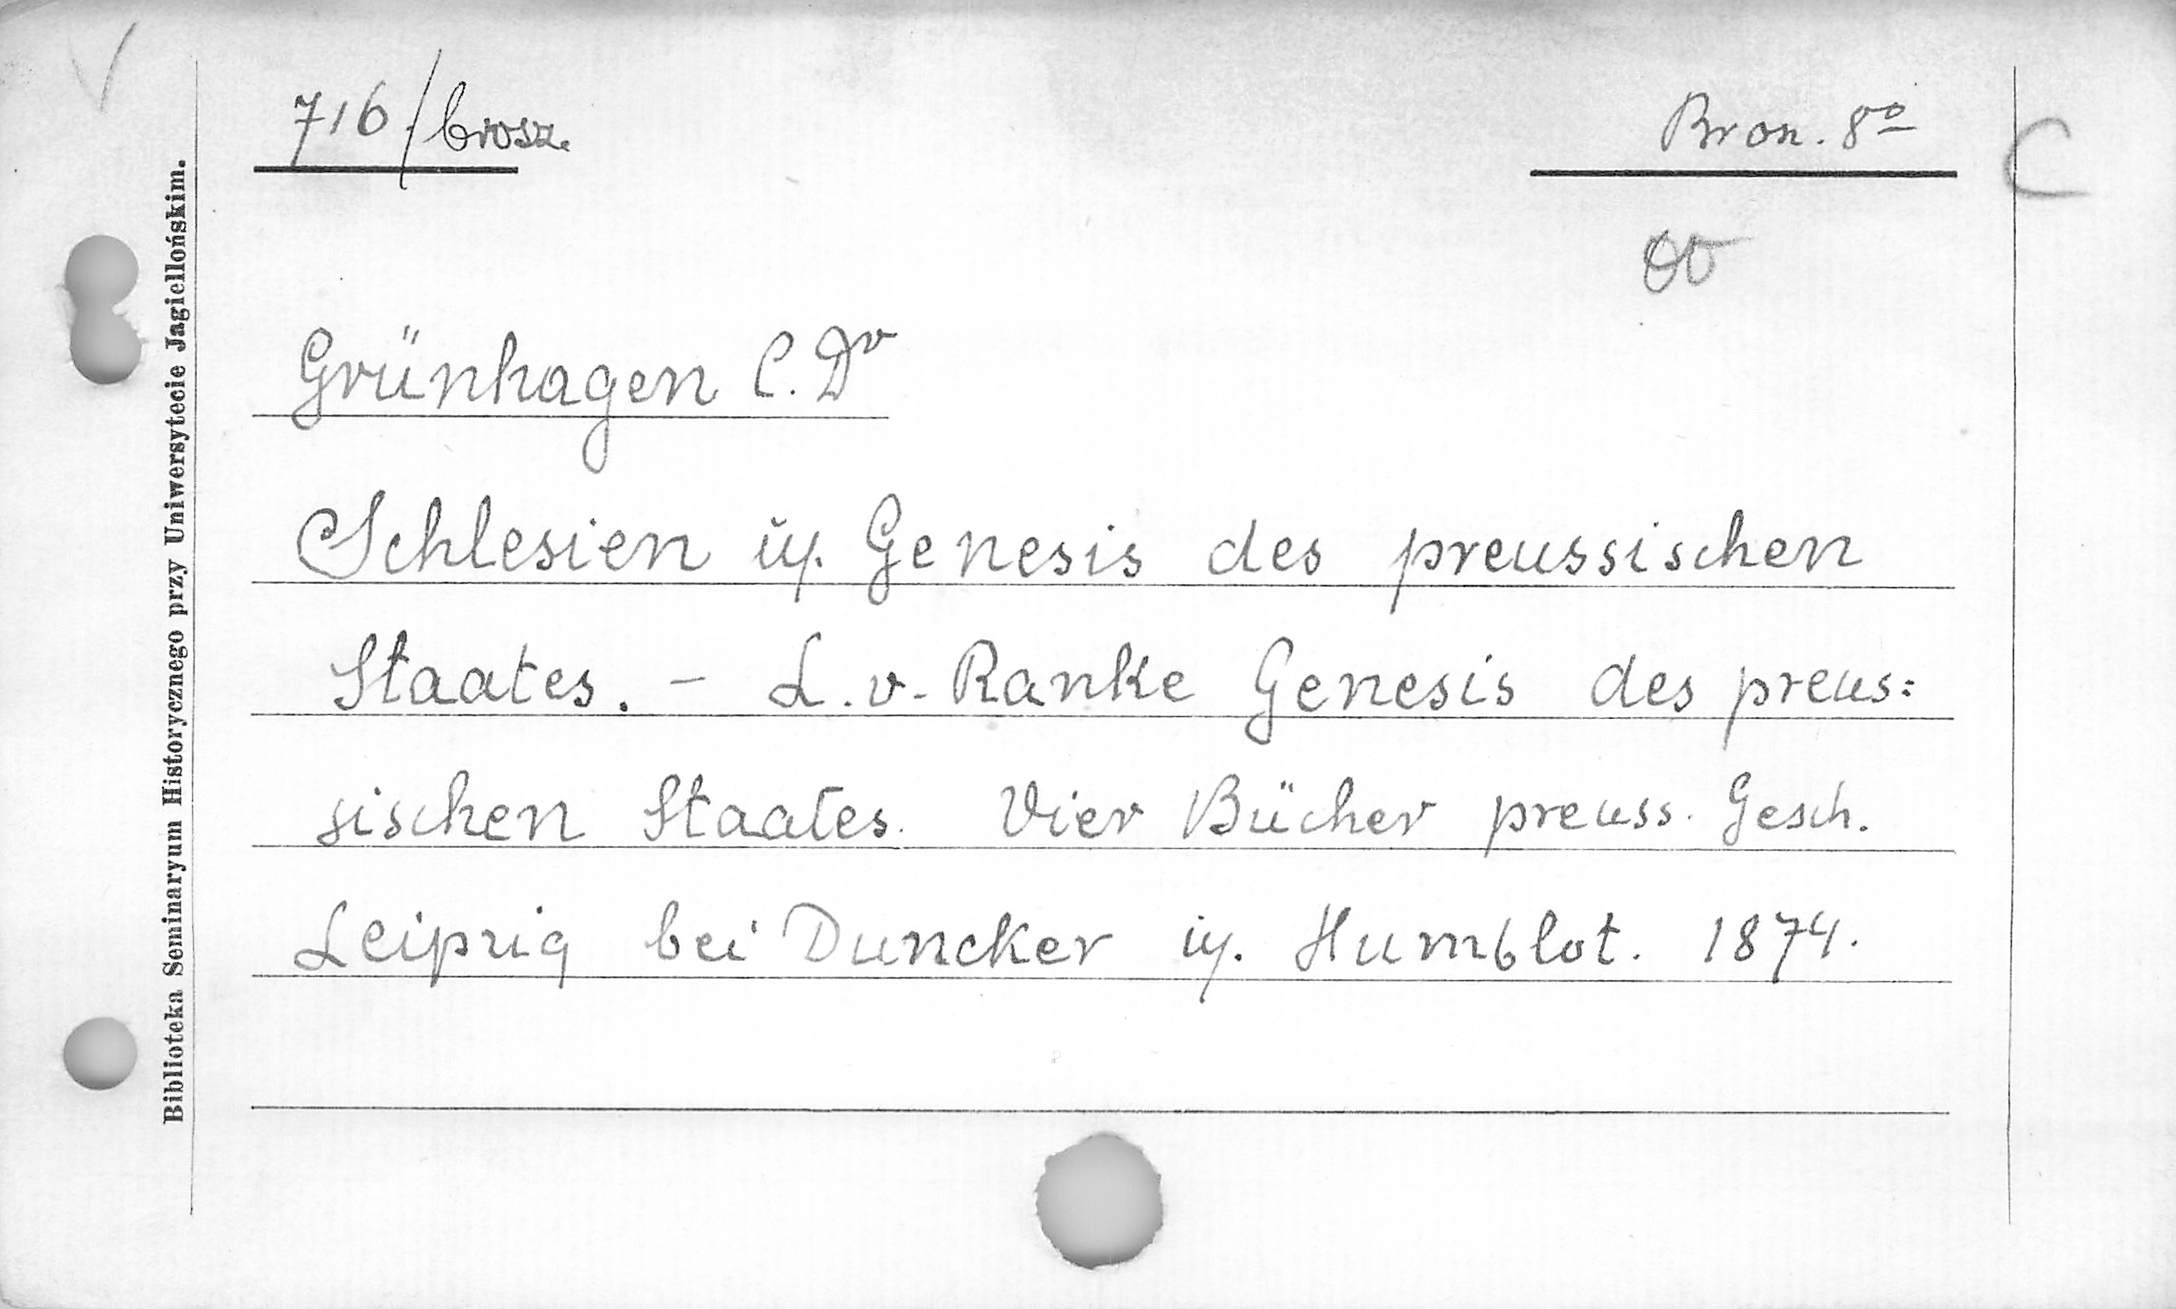 716/brosz.
Bron. 8º
C
Grünhagen C. Dr
Schlesien u. Genesis des preussischen
Staates. - L. v. Ranke Genesis des preus=
sischen Staates. Vier Bücher preuss. Gesch.
Leipzig bei Duncker u. Humblot. 1874.
Biblioteka Seminaryum Historycznego przy Uniwersytecie Jagiellońskim.